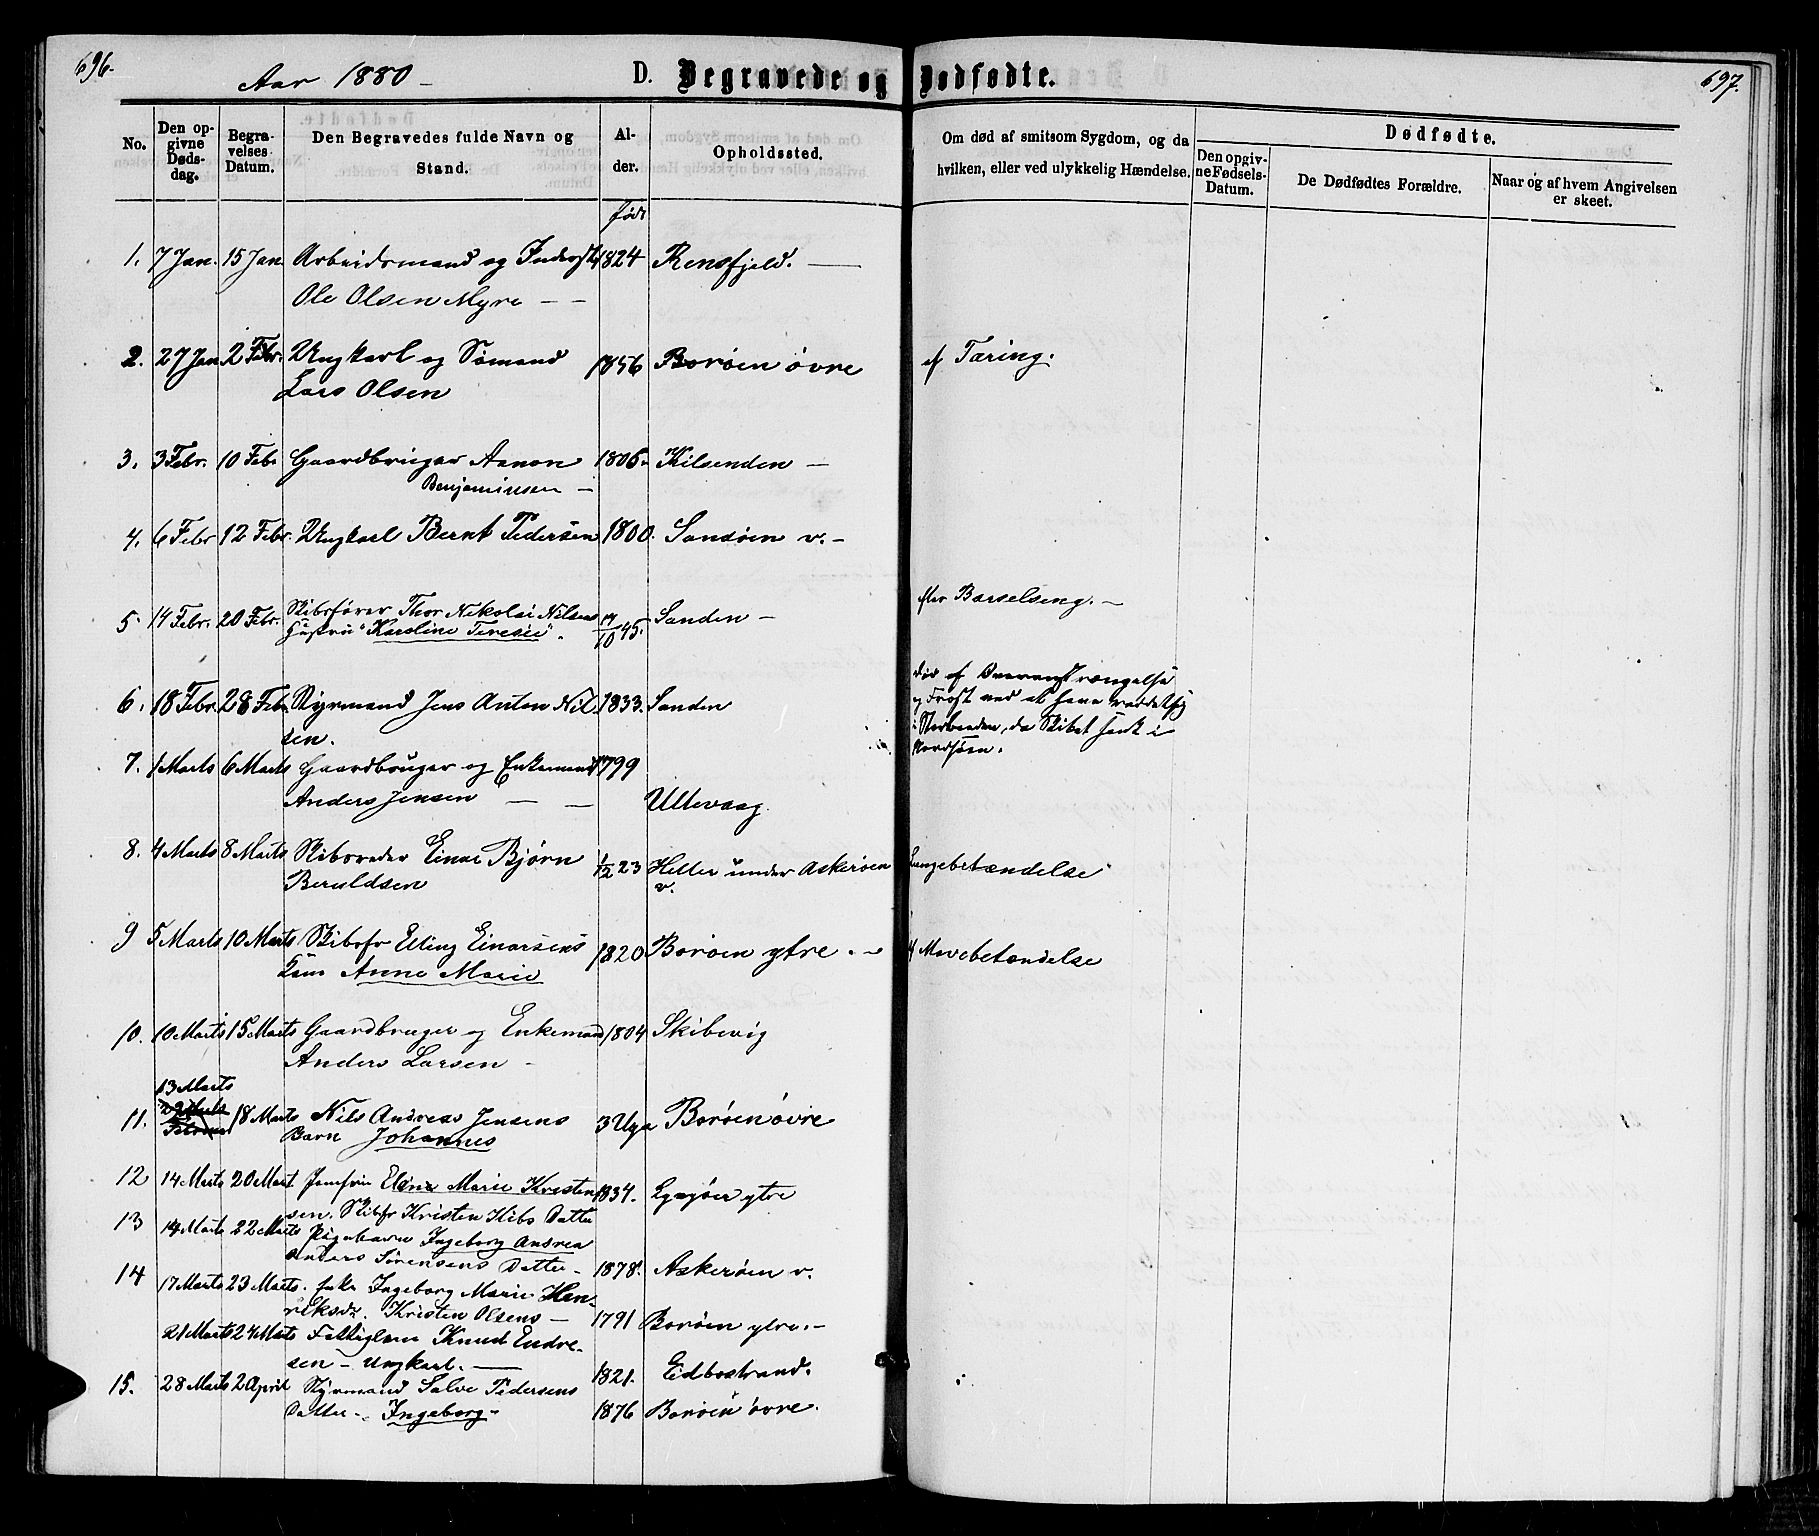 696.
Aar 1880 –
D. Begravede og Dødfødte.
697.
No.
Den opgivne Dødsdag.
Begravelses Datum.
Den Begravedes fulde Navn og Stand.
Alder.
Opholdssted.
Om død af smitsom Sygdom, og da hvilken, eller ved ulykkelig Hændelse.
Dødfødte.
Den opgivne Fødsels-Datum.
De Dødfødtes Forældre.
Naar og af hvem Angivelsen er skeet.
født
1. 7 Jan. 15 Jan. Arbeidsmand og Inderst 1824 Rensfjeld. —
Ole Olsen Myre — —
2. 27 Jan 2 Febr. Ungkarl og Sømand 1856 Borøen øvre af Tæring.
Lars Olsen
3. 3 Febr. 10 Febr Gaardbruger Aanon 1806. Kilsenden —
Benjaminsen —
4. 6 Febr 12 Febr. Ungkarl Bernt Pedersen 1800. Sandøen v. –
5. 14 Febr. 20 Febr. Skibsfører Thor Nikolai Nilsens 14/10 45. Sanden – efter Barselseng. —
Hustru "Karoline Teresie".
6. 18 Febr. 28 Febr Styrmand Jens Anton Nil- 1833. Sanden
sen.
død af Overanstrængelse
og Frost ved at have reddet sig
i Skibsbaaden, da Skibet sank i
Nordsøen.
7. 1 Marts 6 Marts Gaardbruger og Enkemand 1799
Anders Jensen — — Ullevaag.
8. 4 Marts 8 Marts Skibsreder Einar Bjørn 1/12 23 Heller under Askerøen Lungebetændelse
Beruldsen v.
9 5 Marts 10 Marts Skibsfr Elling Einarsens 1820 Borøen ytre. – af Mavebetændelse
Kone Anne Marie
10. 10 Marts 15 Marts Gaardbruger og Enkemand 1804 Skibevig
Anders Larsen –
13 Marts
11. 18 Marts Nils Andreas Jensens 3 Uger Borøen øvre
Barn Johannes
12 14 Marts 20 Mart Jomfru Elene Marie Kristen- 1834. Egsjøen ytre
sen. Skibsfr Kristen Kibs Datter
13 14 Marts 22 Marts Pigebarn Ingeborg Andrea
Anders Sørensens Datter – 1878. Askerøen v.
14 17 Marts 23 Marts. Enke Ingeborg Marie Hen-
riksdr. Kristen Olsens — 1791 Borøen ytre. –
21 Marts 24 Marts Fattiglem Knud Endre-
sen – Ungkarl. — 1821. Eidbostrand.
15. 28 Marts 2 April Styrmand Salve Pedersens
Datter – Ingeborg – 1876 Borøen øvre.